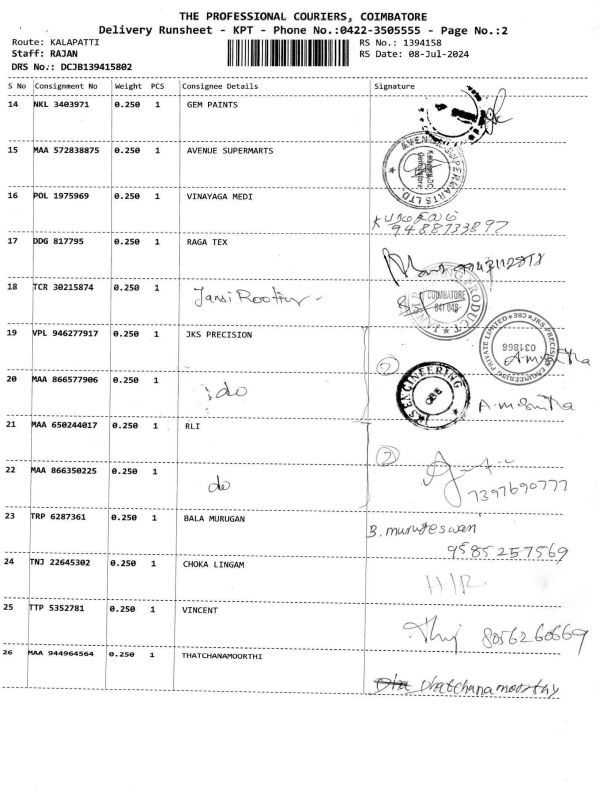 THE PROFESSIONAL COURIERS, COIMBATORE
Delivery Runsheet - KPT - Phone No.:0422-3505555 - Page No.:2
Route: KALAPATTI RS No.: 1394158
Staff: RAJAN RS Date: 08-Jul-2024
DRS No.: DCJB139415802
S No Consignment No Weight PCS Consignee Details Signature
14 NKL 3403971 0.250 1 GEM PAINTS
15 MAA 572838875 0.250 1 AVENUE SUPERMARTS
AVENUE SUPERMARTS LTD.
16 POL 1975969 0.250 1 VINAYAGA MEDI
9488733897
17 DDG 817795 0.250 1 RAGA TEX
18 TCR 30215874 0.250 1
COIMBATORE
641 048
19 VPL 946277917 0.250 1 JKS PRECISION
JKS-PRECISION ENGINEERING PRIVATE LIMITED
031866
20 MAA 866577906 0.250 1 do
KS ENGINEERING
21 MAA 650244017 0.250 1 RLI
2
22 MAA 866350225 0.250 1 do
7397690777
23 TRP 6287361 0.250 1 BALA MURUGAN
B. murugeswan
9585257569
24 TNJ 22645302 0.250 1 CHOKA LINGAM
H/R
25 TTP 5352781 0.250 1 VINCENT
8056260669
26 MAA 944964564 0.250 1 THATCHANAMOORTHI
Dhatchanamoorthy